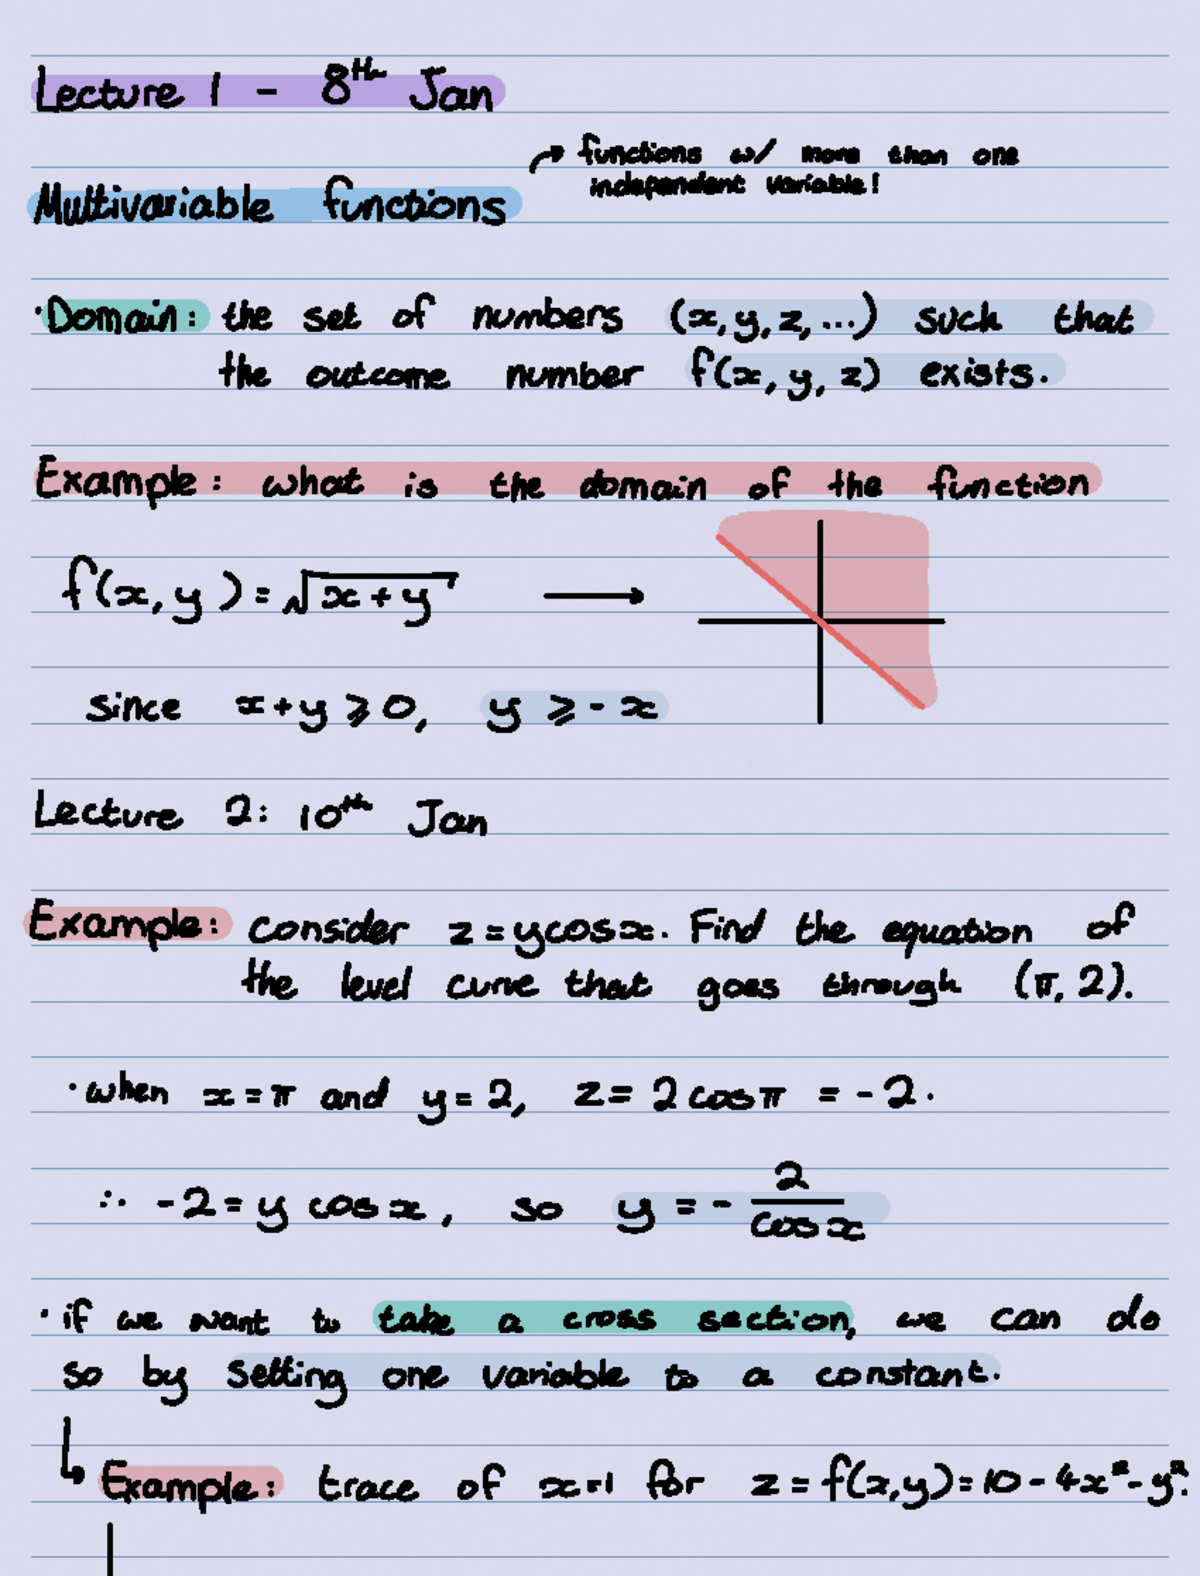 Lecture 1 - 8th Jan
→ functions w/ more than one
independent variable!
Multivariable functions
· Domain: the set of numbers (x, y, z, ...) such that
the outcome number f(x, y, z) exists.
Example: what is the domain of the function
f(x, y) = √(x + y) →
since x + y ⩾ 0, y ⩾ - x
Lecture 2: 10th Jan
Example: consider z = y cos x. Find the equation of
the level curve that goes through (π, 2).
· when x = π and y = 2, z = 2 cos π = - 2.
∴ -2 = y cos x, so y = - 2/cos x
· if we want to take a cross section, we can do
so by setting one variable to a constant.
↳ Example: trace of x=1 for z = f(x,y) = 10 - 4x² - y².